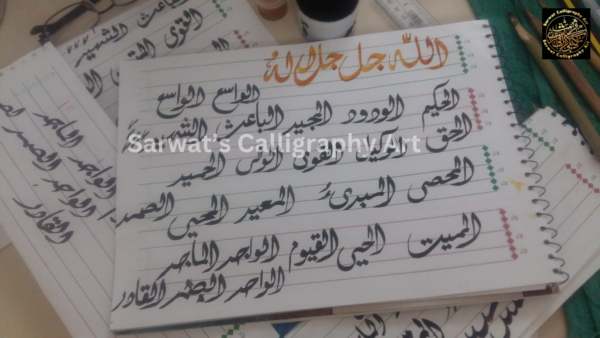 الله جل جلاله
الواسع الواسع
الحكيم الودود المجيد الباعث الشهيد
الحق الوكيل القوى الولى الحميد
المحصى المبدئ المعيد المحيى
المميت الحيى القيوم الواجد الماجد
الواحد الصمد القادر
Sarwat's Calligraphy Art
الباعث الشهيد
القوى
الواجد الماجد
الواحد الصمد
القادر
Sarwat Calligraphy